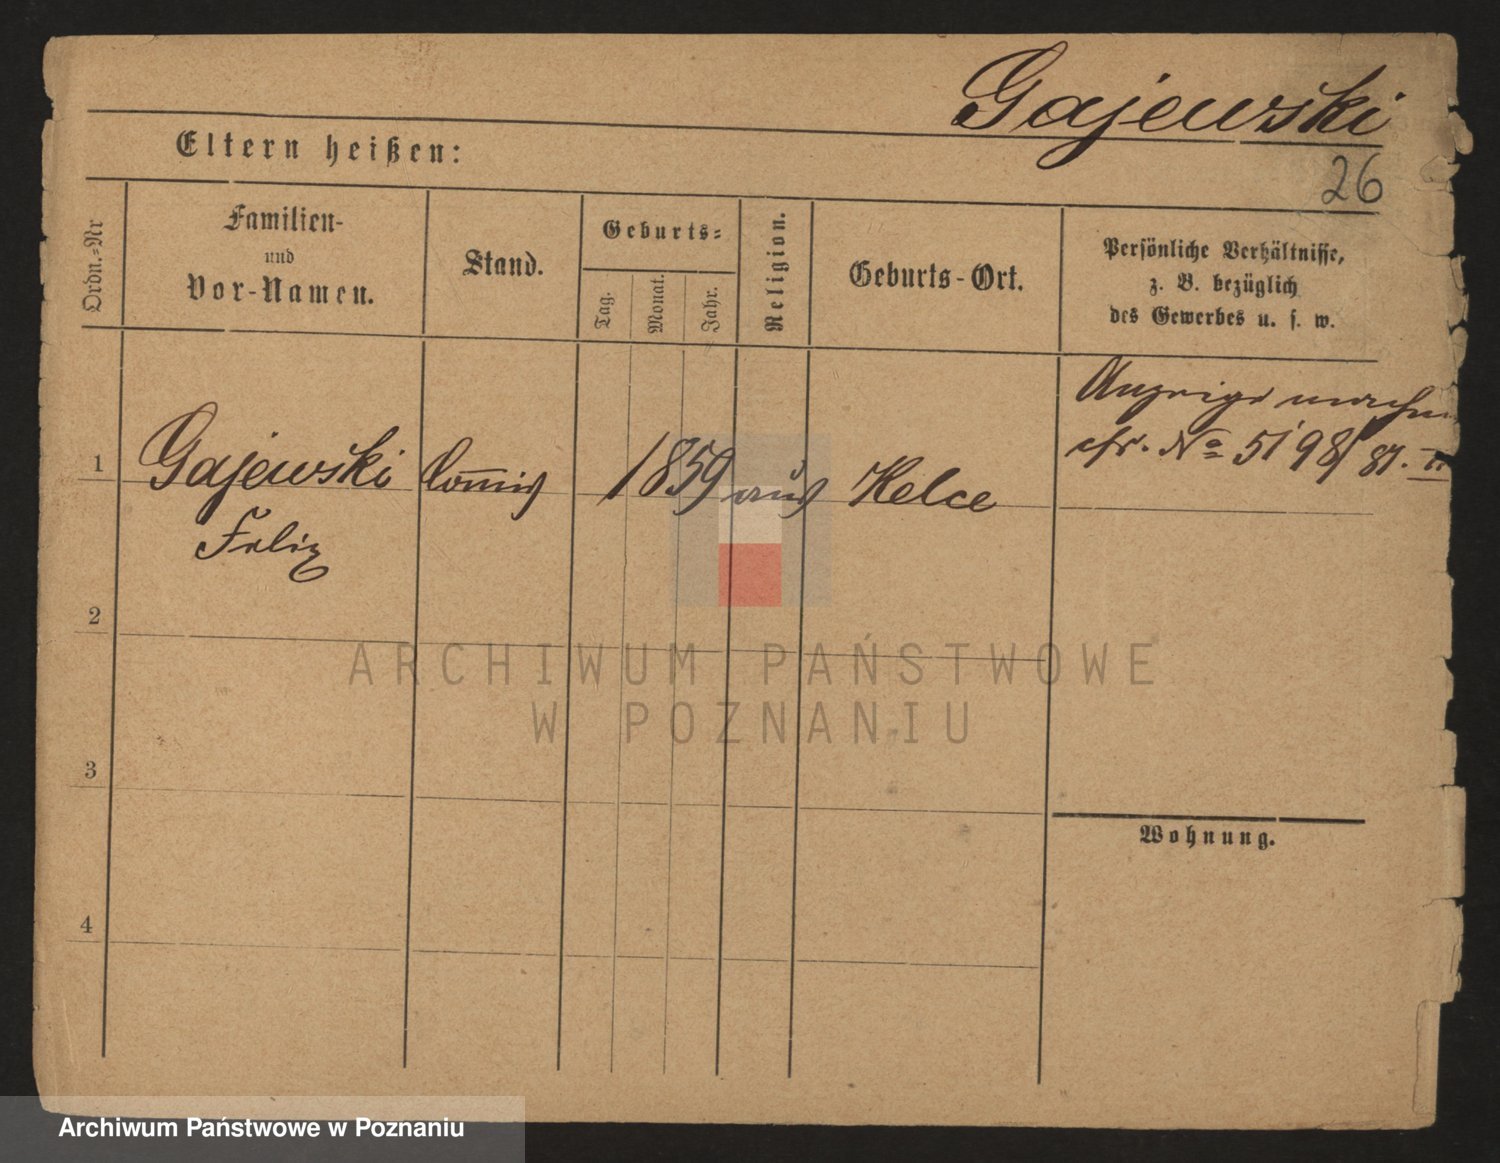 Gajewski
Eltern heißen:
26
Ordn.-Nr
Familien-
und
Vor-Namen.
Stand.
Geburts-
Tag.
Monat.
Jahr.
Religion.
Geburts-Ort.
Persönliche Verhältnisse,
z. B. bezüglich
des Gewerbes u. s. w.
Anzeige machen
cfr. No 5198/87. II
1
Gajewski Com̅is 1859 aus Kelce
Felix
2
3
4
Wohnung.
ARCHIWUM PAŃSTWOWE
W POZNANIU
Archiwum Państwowe w Poznaniu